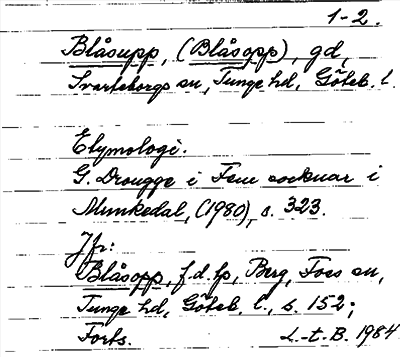 1-2.
Blåsupp, (Blåsopp), gd,
Svarteborgs sn, Tunge hd, Göteb. l.
Etymologi.
G. Drougge i Fem socknar i
Munkedal, (1980), s. 323.
Jfr:
Blåsopp, f.d. tp, Berg, Foss sn,
Tunge hd, Göteb. l., s. 152;
Forts. L-t. B. 1984